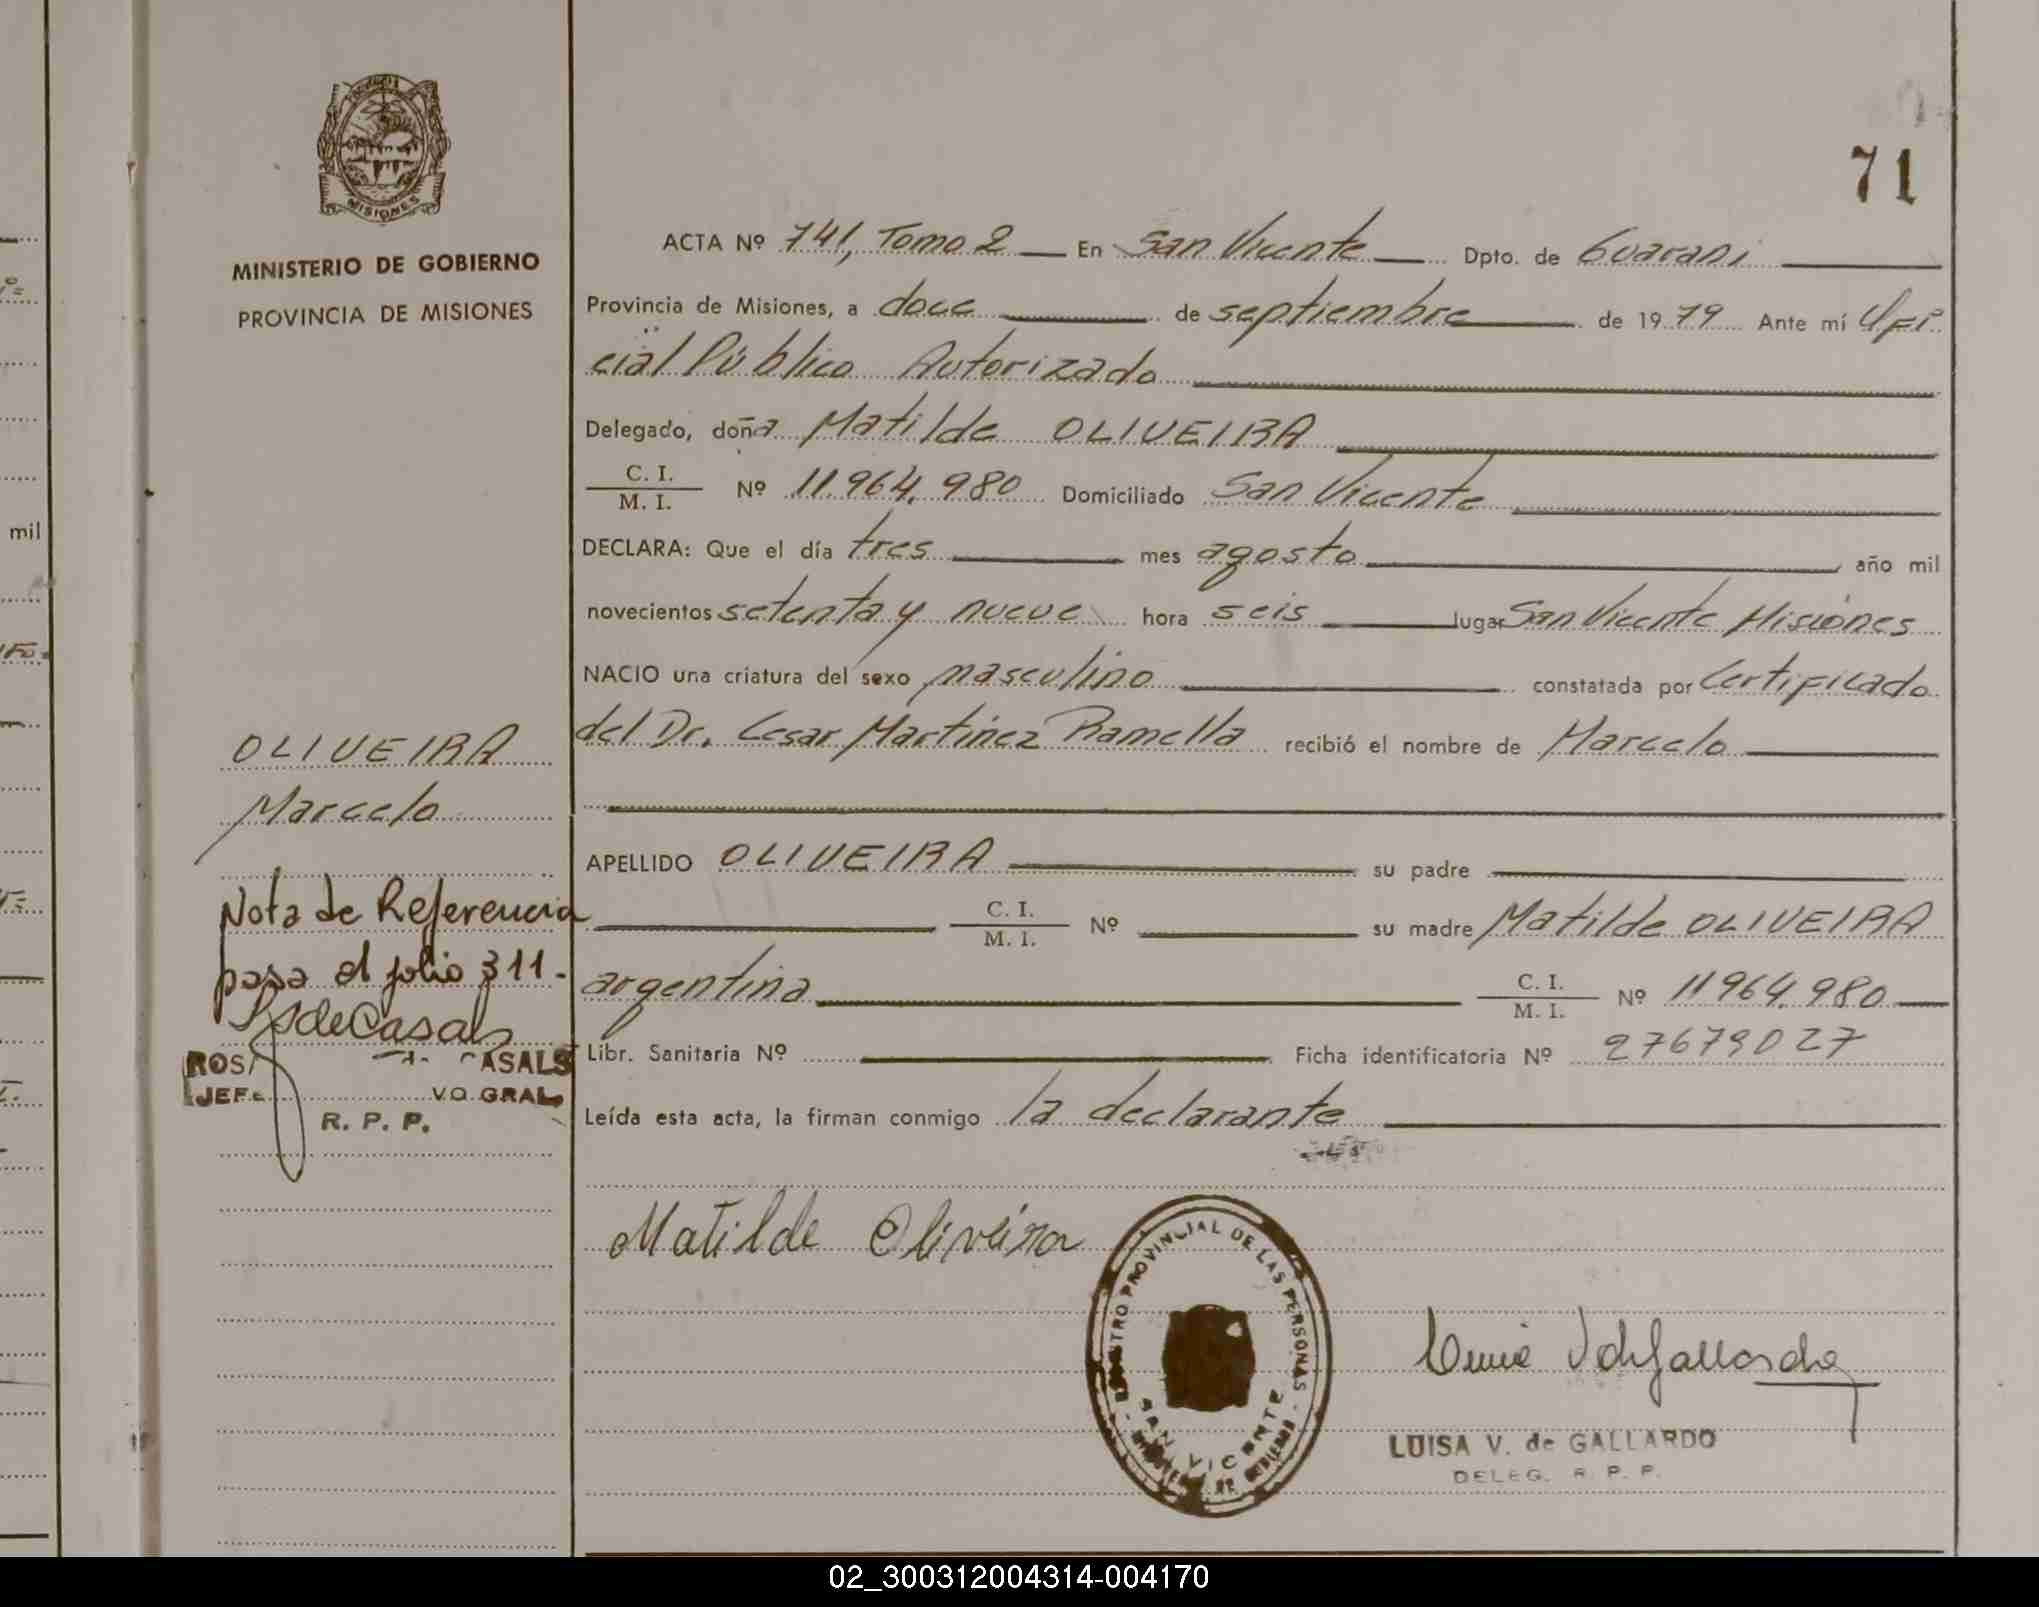 MISIONES
MINISTERIO DE GOBIERNO
PROVINCIA DE MISIONES
71
ACTA Nº 741, Tomo 2 En San Vicente Dpto. de Guarani
Provincia de Misiones, a doce de septiembre de 1979 Ante mí Ofi
cial Público Autorizado
Delegado, doña Matilde OLIVEIRA
C. I.
M. I. Nº 11.964.980 Domiciliado San Vicente
DECLARA: Que el día tres mes agosto año mil
novecientos setenta y nueve hora seis lugar San Vicente Misiones
NACIO una criatura del sexo masculino constatada por Certificado
del Dr. Cesar Martínez Ramella recibió el nombre de Marcelo
APELLIDO OLIVEIRA su padre
C. I.
M. I. Nº su madre Matilde OLIVEIRA
argentina C. I.
M. I. Nº 11964.980
Libr. Sanitaria Nº Ficha identificatoria Nº 27679027
Leída esta acta, la firman conmigo la declarante
Matilde Oliveira
REGISTRO PROVINCIAL DE LAS PERSONAS
SAN VICENTE
LUISA V. de GALLARDO
DELEG. R. P. P.
OLIVEIRA
Marcelo
Nota de Referencia
pasa al folio 311.
CASALS
JEF VO GRAL
R. P. P.
mil
02_300312004314-004170